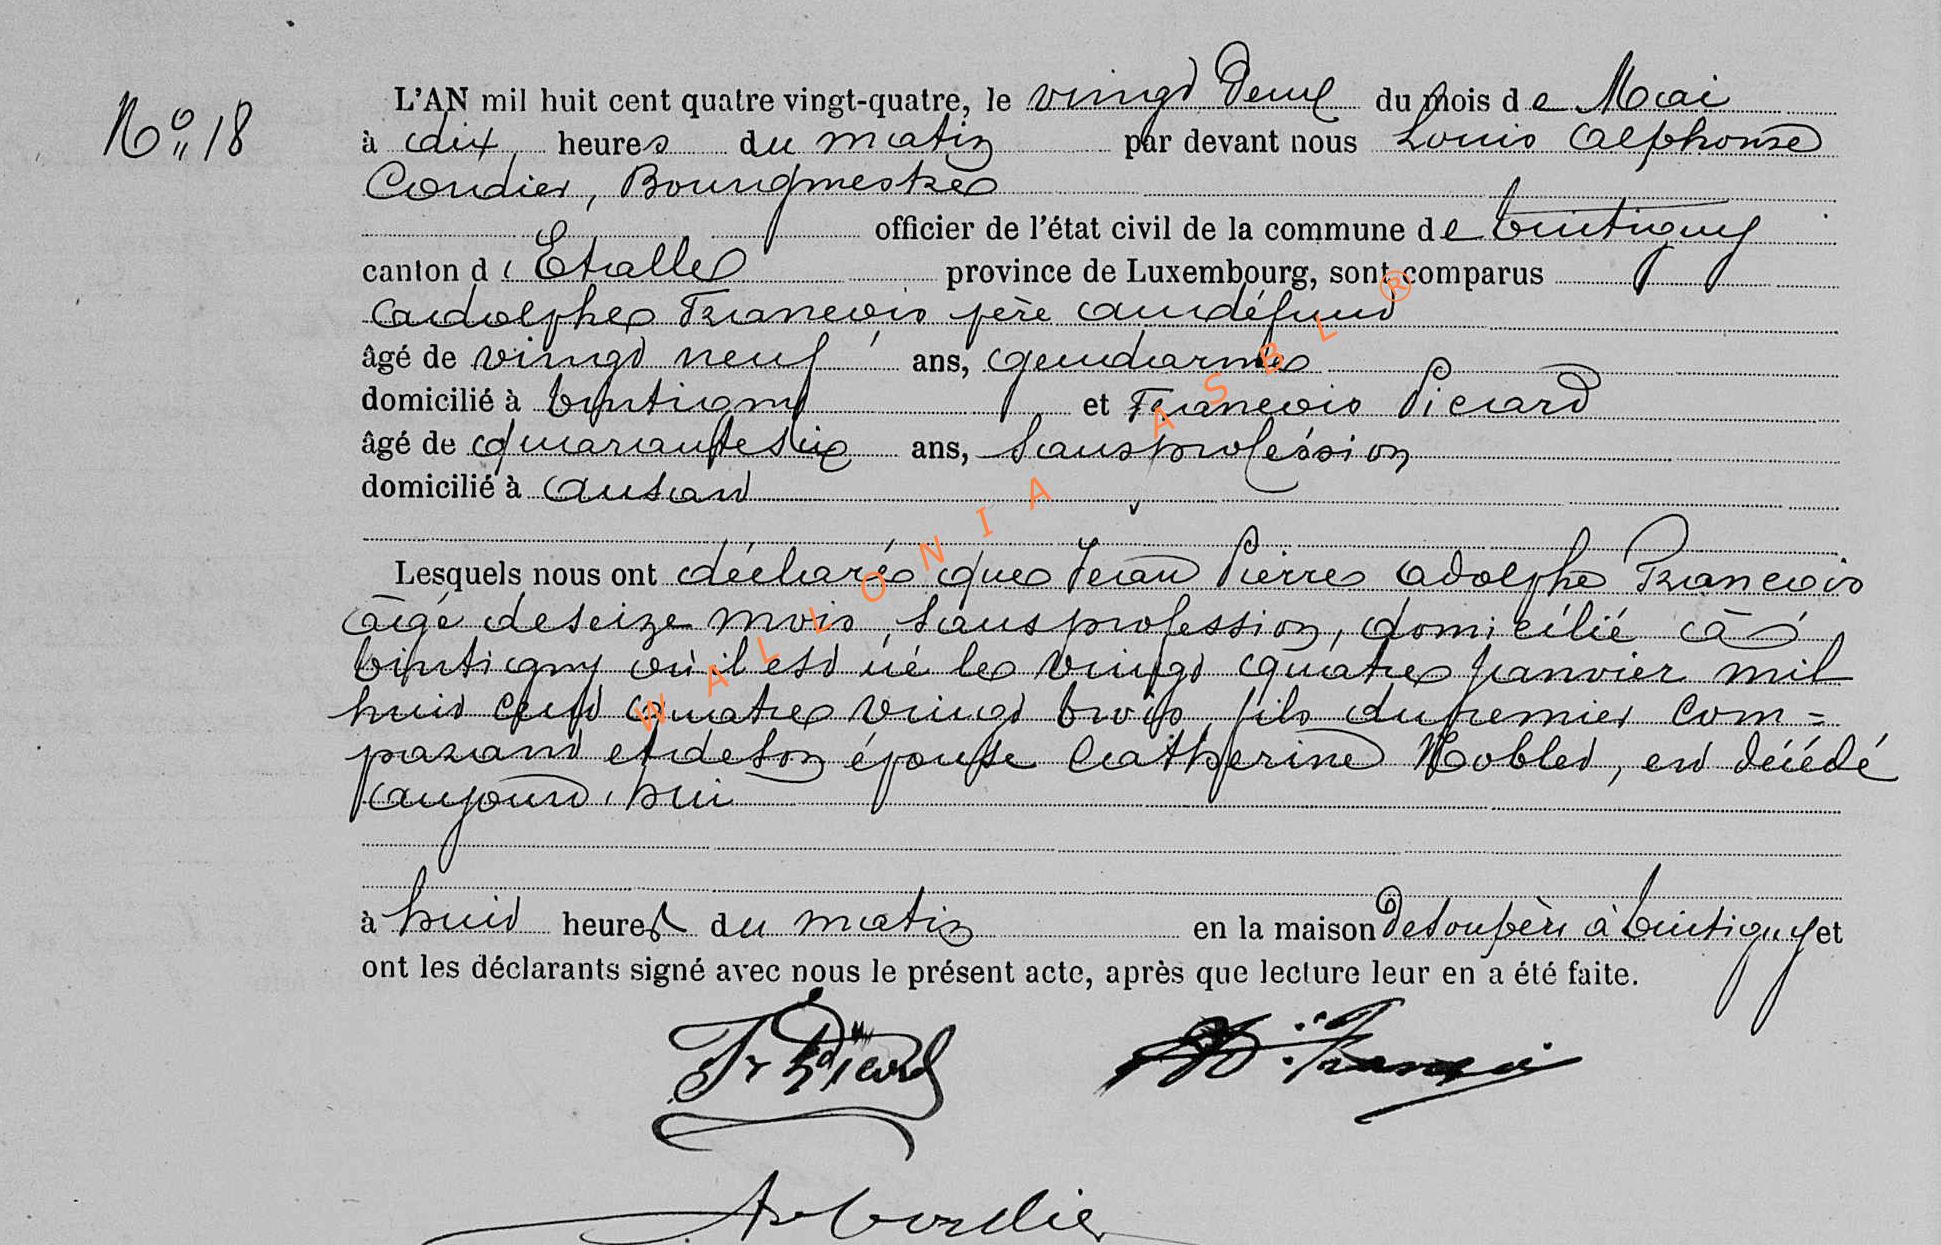 L'AN mil huit cent quatre vingt-quatre, le vingt deux du mois de Mai
No 18
à dix heures du matin par devant nous Louis Alphonse
Cordier, Bourgmestre
officier de l'état civil de la commune de tintigny
canton d'Etalle province de Luxembourg, sont comparus
Adolphe Francois père au défunt
âgé de vingt neuf ans, gendarme
domicilié à tintigny et Francois Picard
âgé de quarante six ans, sans profession
domicilié à ansart
Lesquels nous ont déclaré que Jean Pierre Adolphe Francois
âgé de seize mois, sans profession, domicilié à
tintigny où il est né le vingt quatre janvier mil
huit cent quatre vingt trois, fils du premier com=
parant et de son épouse Catherine Noblet, est décédé
aujourd'hui
à huit heures du matin en la maison de son père à tintigny et
ont les déclarants signé avec nous le présent acte, après que lecture leur en a été faite.
Fr Picard Ad. François
A Cordier
WALLONIA ASBL ®